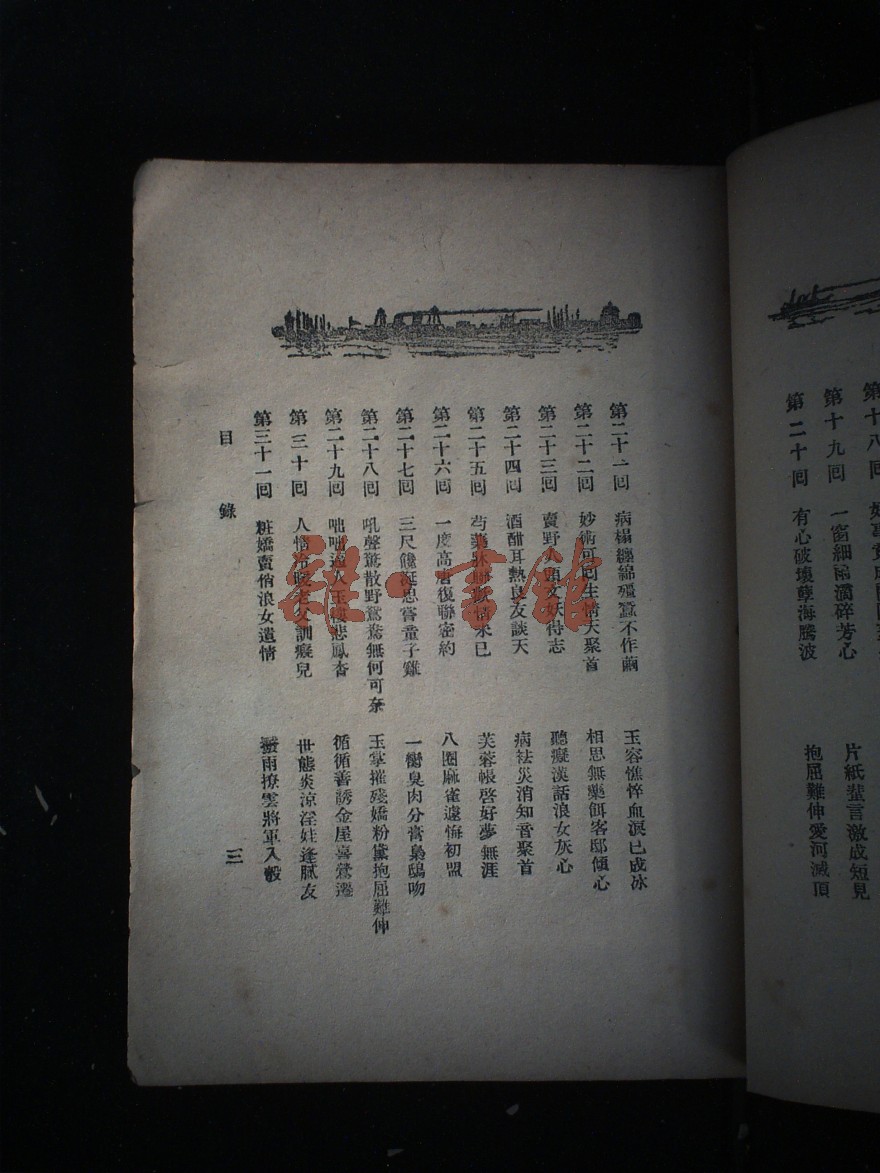 第十八回
第十九回 一窗細雨滴碎芳心 片紙蜚言激成短見
第二十回 有心破壞孽海騰波 抱屈難伸愛河滅頂
第二十一回 病榻纏綿殭蠶不作繭 玉容憔悴血淚已成冰
第二十二回 妙術可回生情天聚首 相思無藥餌客邸傾心
第二十三回 賣野人頭女妖得志 聽癡漢話浪女灰心
第二十四回 酒酣耳熱良友談天 病祛災消知音聚首
第二十五回 芍藥 情未已 芙蓉帳啓好夢無涯
第二十六回 一度高唐復聯密約 八圈麻雀遽悔初盟
第二十七回 三尺饞涎思嘗童子雞 一臠臭肉分膏梟鴟吻
第二十八回 吼聲驚散野鴛鴦無何可奈 玉掌摧殘嬌粉黛抱屈難伸
第二十九回 咄咄逼人玉樓悲鳳杳 循循善誘金屋喜鶯遷
第三十回 人情冷暖老父訓癡兒 世態炎涼淫娃逢膩友
第三十一回 粧嬌賣俏浪女遺情 雨撩雲將軍入彀
目錄
三
雜·書館